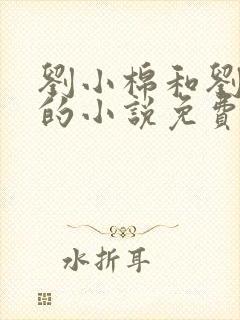 劉小棉和劉
的小說免費
水折耳